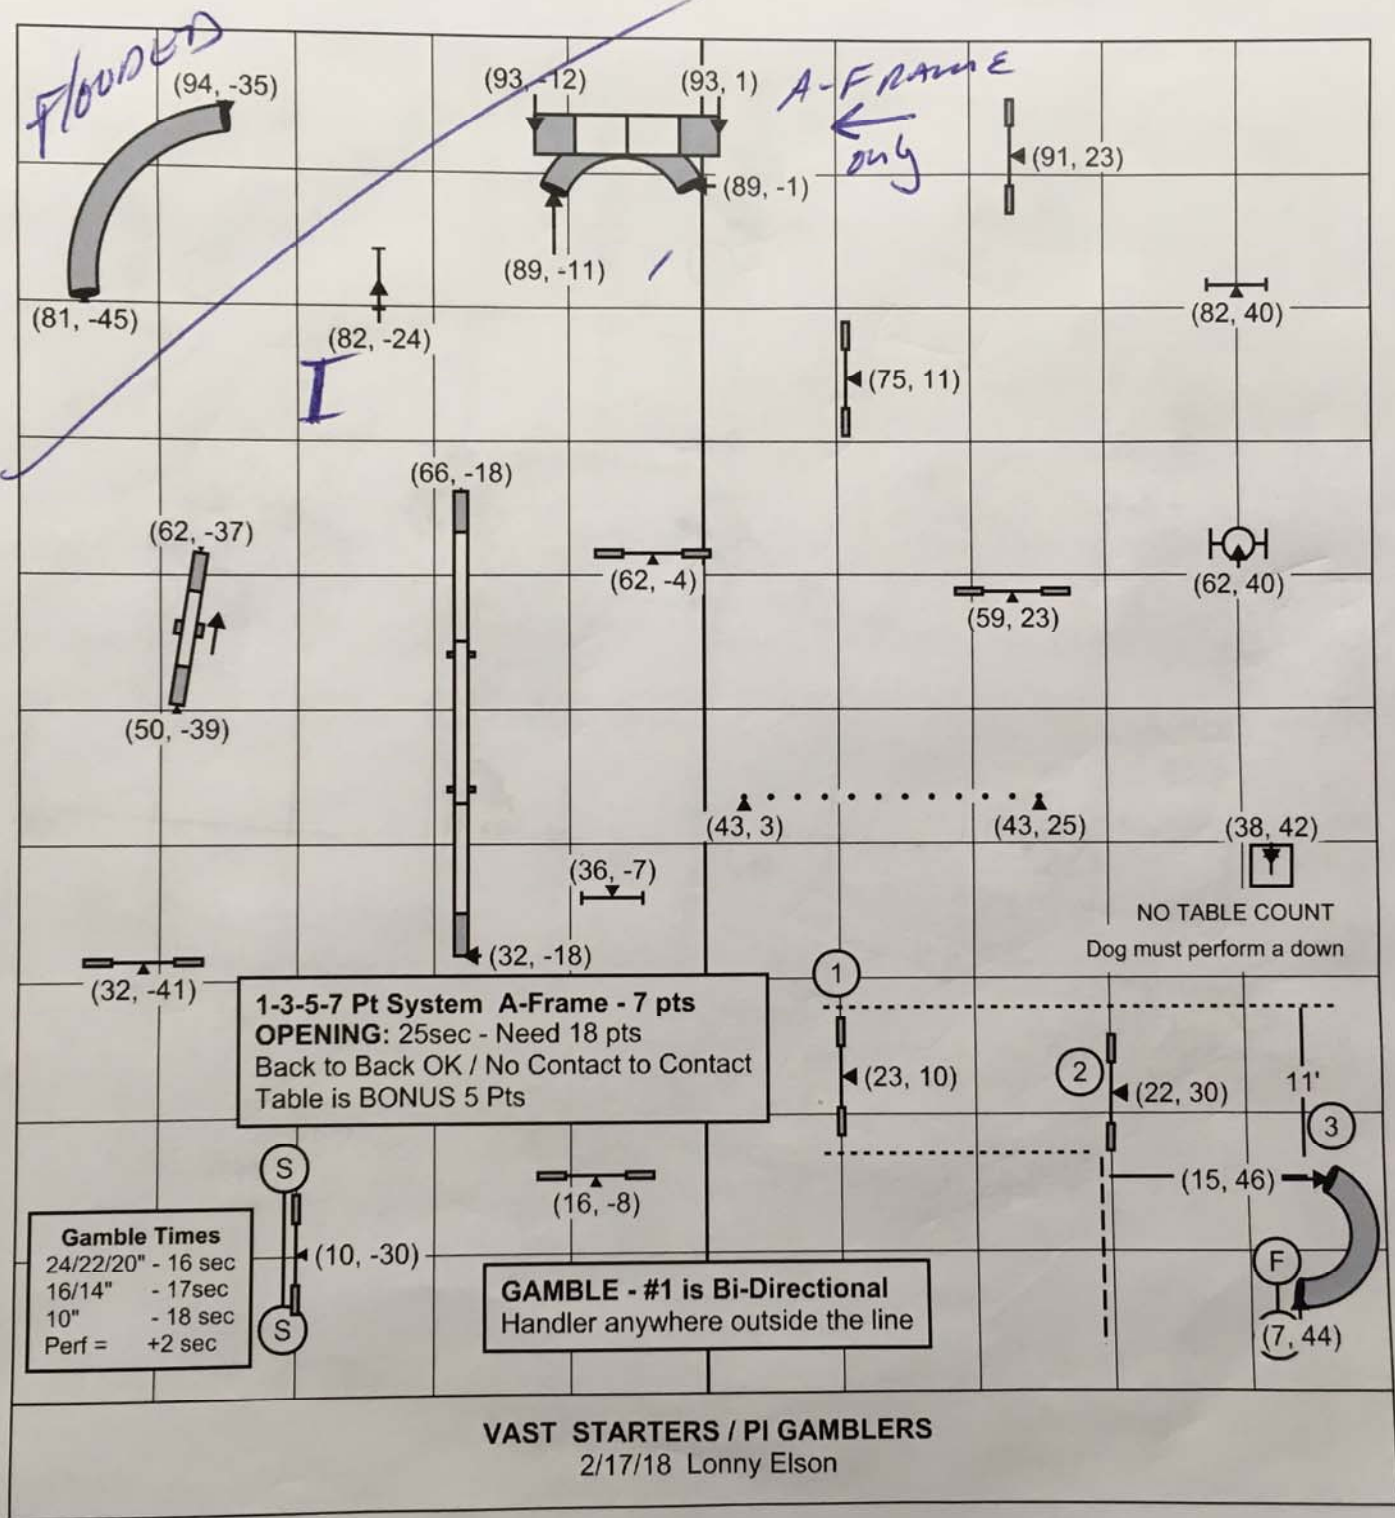 FLOODED
(94, -35)
(93, -12)
(93, 1)
A-FRAME
only
(91, 23)
(89, -1)
(89, -11)
(81, -45)
(82, -24)
(82, 40)
I
(75, 11)
(66, -18)
(62, -37)
(62, -4)
(62, 40)
(59, 23)
(50, -39)
(43, 3)
(43, 25)
(38, 42)
(36, -7)
NO TABLE COUNT
Dog must perform a down
(32, -18)
(32, -41)
1
1-3-5-7 Pt System A-Frame - 7 pts
OPENING: 25sec - Need 18 pts
Back to Back OK / No Contact to Contact
Table is BONUS 5 Pts
(23, 10)
2
(22, 30)
11'
3
S
(16, -8)
(15, 46)
Gamble Times
24/22/20" - 16 sec
16/14" - 17sec
10" - 18 sec
Perf = +2 sec
(10, -30)
S
GAMBLE - #1 is Bi-Directional
Handler anywhere outside the line
F
(7, 44)
VAST STARTERS / PI GAMBLERS
2/17/18 Lonny Elson